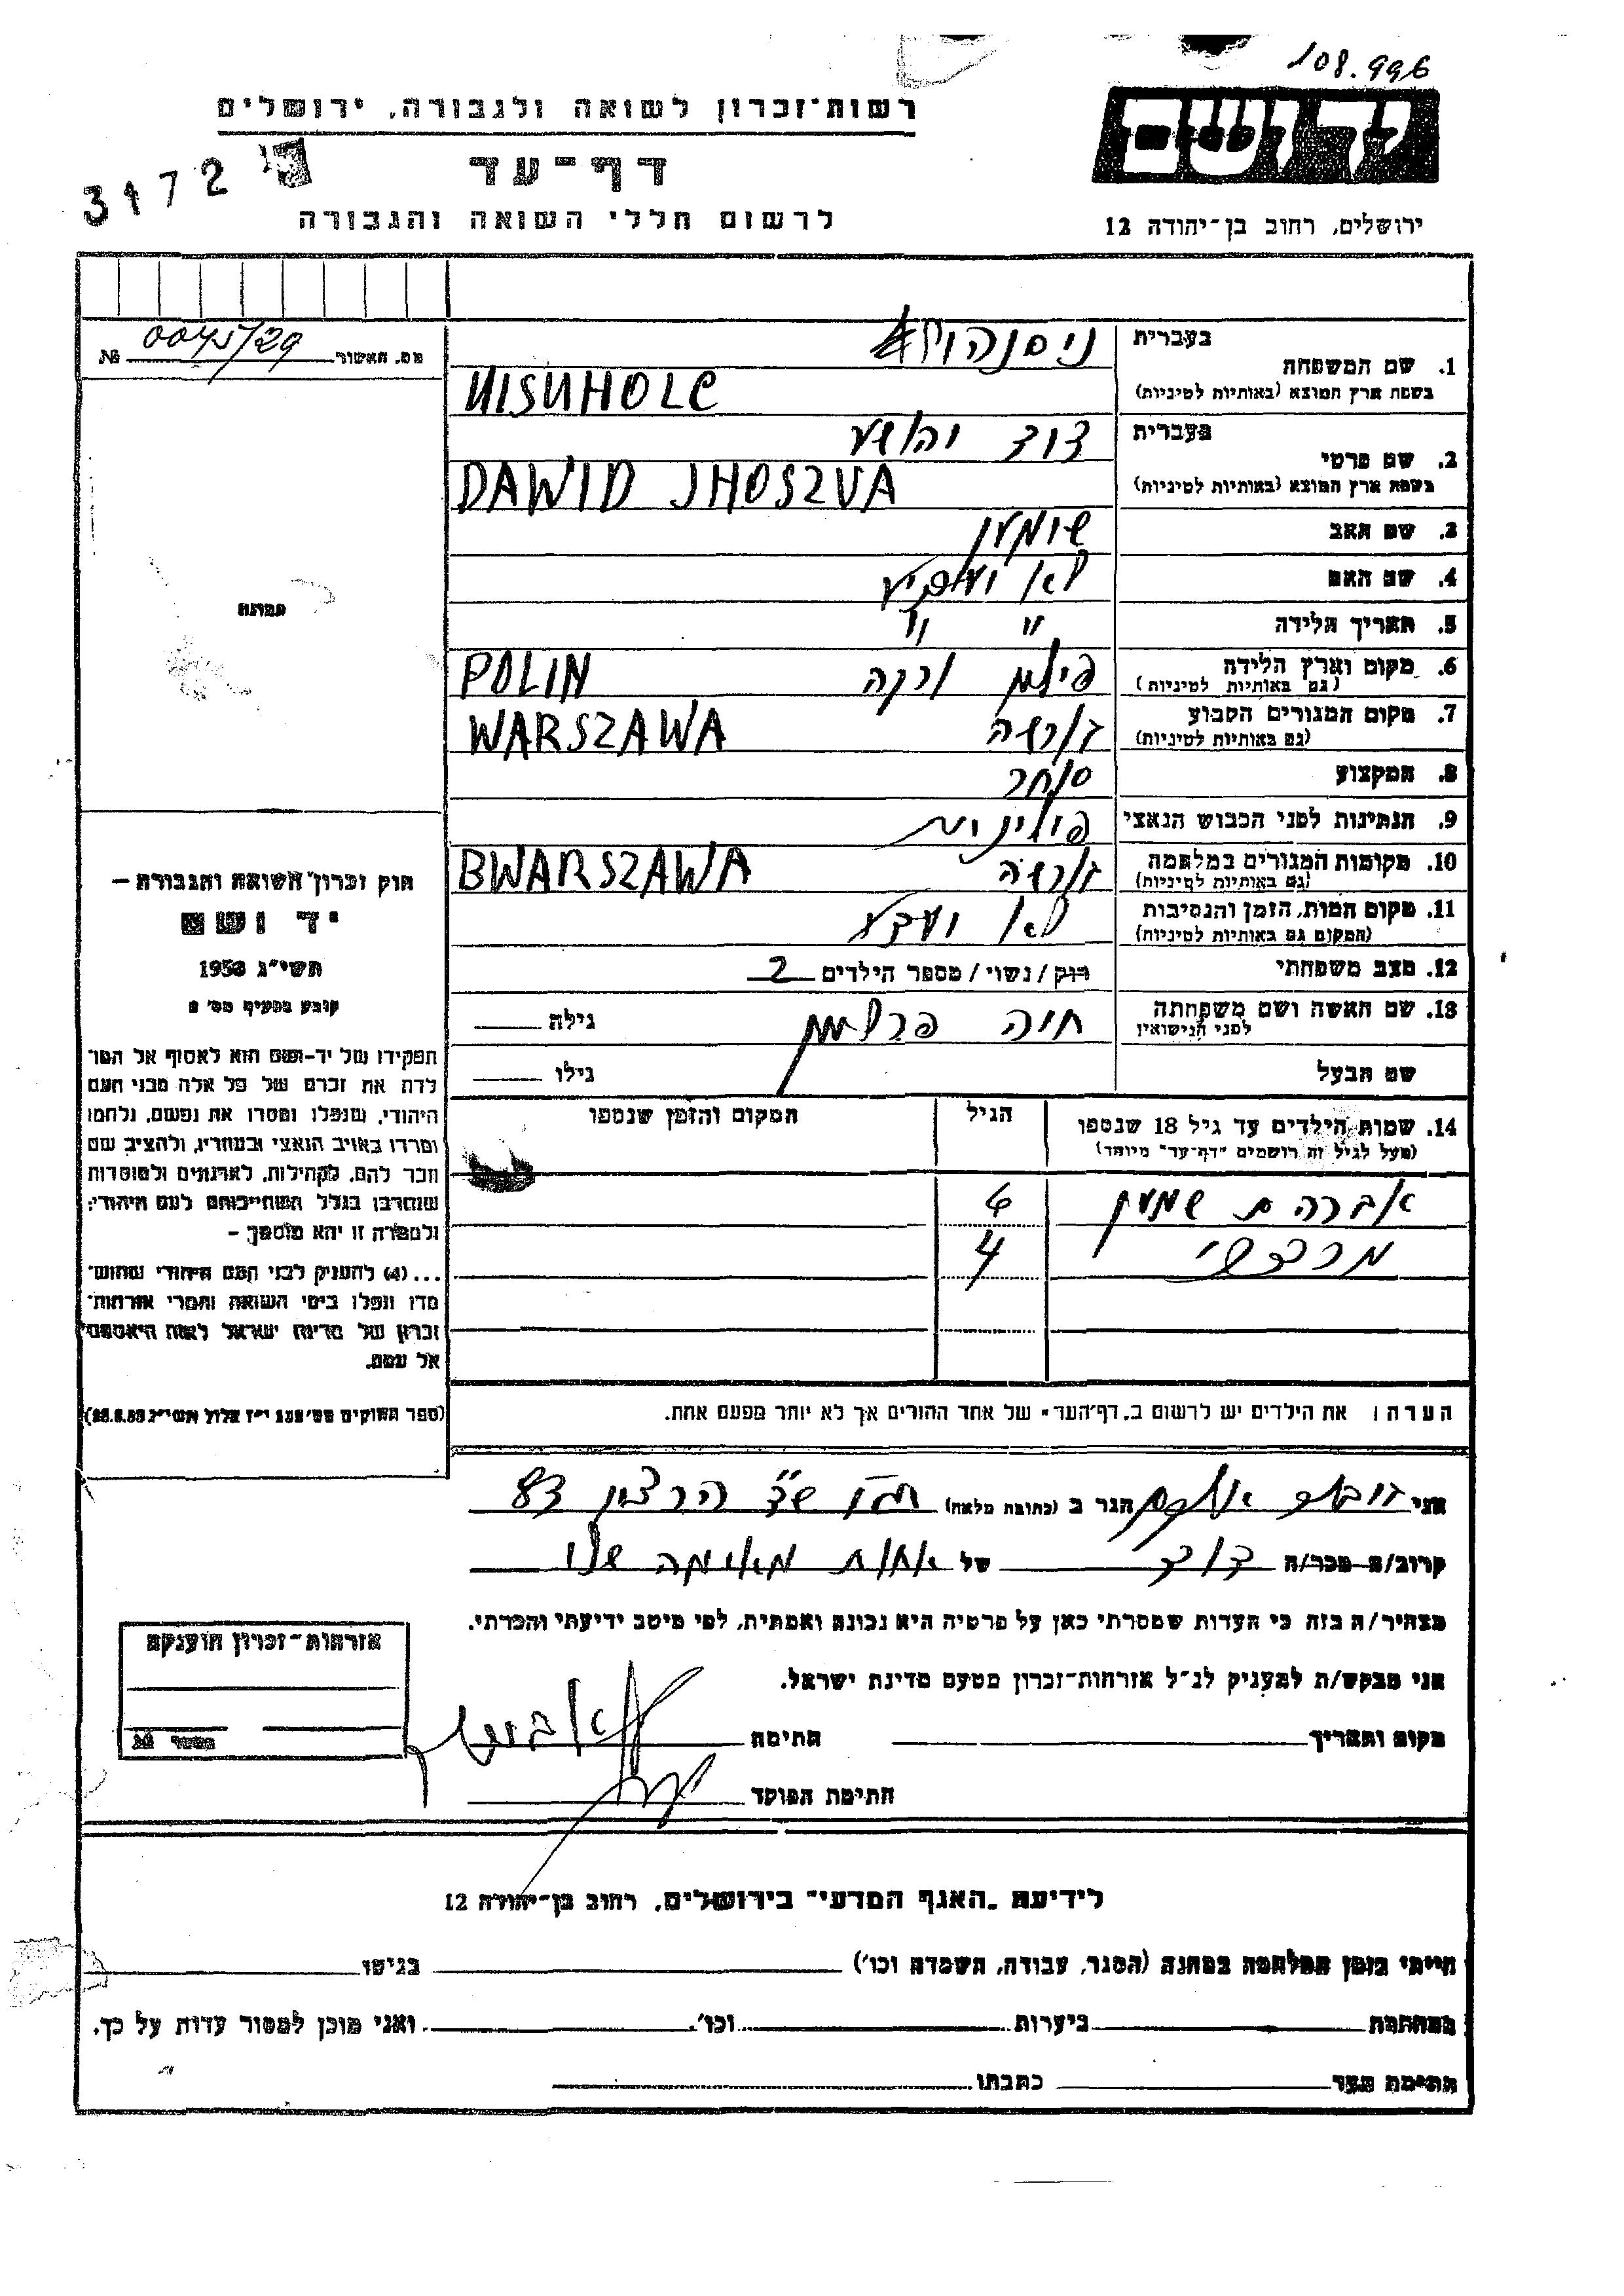 108.996
רשות־זכרון לשואה ולגבורה, ירושלים
יד ושם
דף־עד
3172
לרשום חללי השואה והגבורה
ירושלים, רחוב בן־יהודה 12
מס. האשור № 0045/29
1. שם המשפחה
בעברית
בשפת ארץ המוצא (באותיות לטיניות)
NISNHOLC
2. שם פרטי
בעברית דוד יהושע
בשפת ארץ המוצא (באותיות לטיניות)
DAWID JHOSZUA
3. שם האב שימעון
4. שם האם לא
5. תאריך הלידה " "
6. מקום וארץ הלידה
(גם באותיות לטיניות)
POLIN
7. מקום המגורים הקבוע ורשה
(גם באותיות לטיניות)
WARSZAWA
8. המקצוע סוחר
9. הנתינות לפני הכבוש הנאצי פולינית
10. מקומות המגורים במלחמה ורשה
(גם באותיות לטיניות)
BWARSZAWA
11. מקום המות, הזמן והנסיבות לא
(המקום גם באותיות לטיניות)
12. מצב משפחתי רוק / נשוי / מספר הילדים 2
13. שם האשה ושם משפחתה חיה גילה
לפני הנישואין
שם הבעל גילו
14. שמות הילדים עד גיל 18 שנספו הגיל המקום והזמן שנספו
(מעל לגיל זה רושמים "דף־עד" מיוחד)
אברהם שמעון 6
מרדכי 4
הערה: את הילדים יש לרשום ב"דף־העד" של אחד ההורים אך לא יותר מפעם אחת.
תמונה
חוק זכרון השואה והגבורה —
יד ושם
תשי"ג 1953
קובע בסעיף מס' 2
תפקידו של יד־ושם הוא לאסוף אל המו־
לדת את זכרם של כל אלה מבני העם
היהודי, שנפלו ומסרו את נפשם, נלחמו
ומרדו באויב הנאצי ובעוזריו, ולהציב שם
וזכר להם, לקהילות, לארגונים ולמוסדות
שנחרבו בגלל השתייכותם לעם היהודי;
ולמטרה זו יהא מוסמך —
...(4) להעניק לבני העם היהודי שהוש־
מדו ונפלו בימי השואה והמרי אזרחות־
זכרון של מדינת ישראל לאות היאספם
אל עמם.
(ספר החוקים מס' 132 י"ז אלול תשי"ג 28.8.53)
אני הגר ב (כתובת מלאה)
קרוב/ה מכר/ה דוד של אחות מאימה שלו
מצהיר/ה בזה כי העדות שמסרתי כאן על פרטיה היא נכונה ואמתית, לפי מיטב ידיעתי והכרתי.
אני מבקש/ת להעניק לנ"ל אזרחות־זכרון מטעם מדינת ישראל.
מקום ותאריך חתימה
חתימת הפוקד
אזרחות־זכרון הוענקה
מספר №
לידיעת "האגף המדעי" בירושלים, רחוב בן־יהודה 12
הייתי בזמן המלחמה במחנה (הסגר, עבודה, השמדה וכו') בגיטו
במחתרת ביערות וכו'. ואני מוכן למסור עדות על כך.
חתימת העד כתבתו